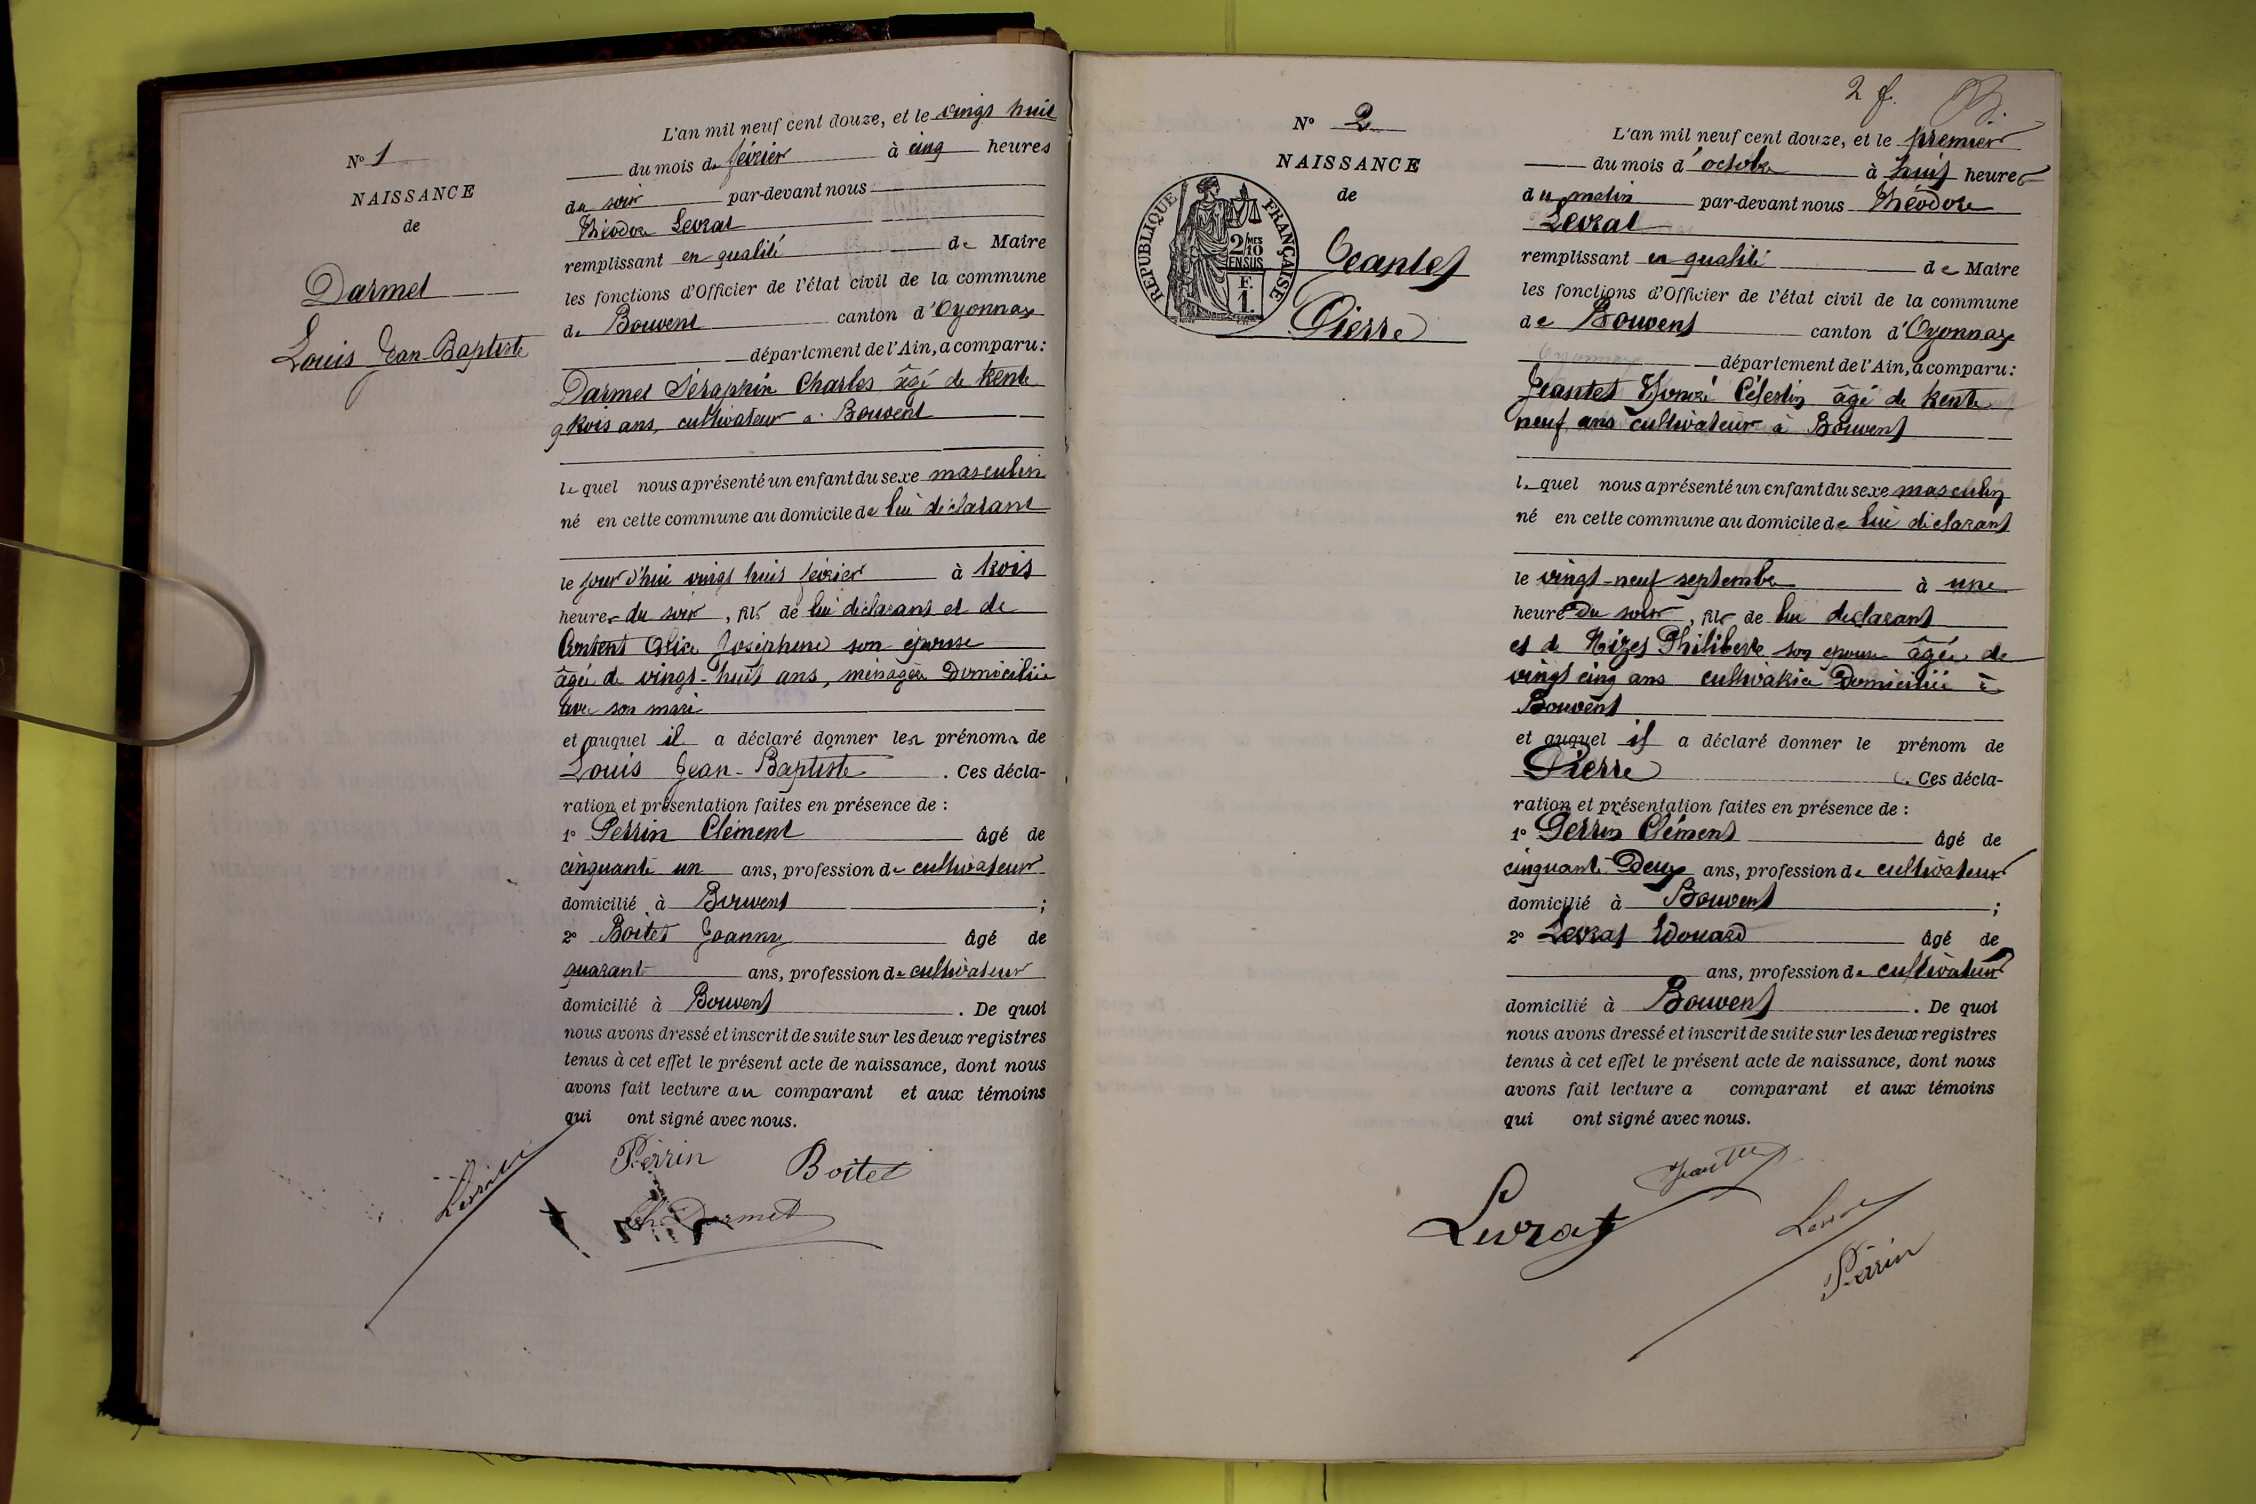 N° 1
NAISSANCE
de
Darmet
Louis Jean-Baptiste
L'an mil neuf cent douze, et le vingt huit
du mois de février à cinq heures
du soir par-devant nous
Théodore Levrat
remplissant en qualité de Maire
les fonctions d'Officier de l'état civil de la commune
de Bouvent canton d'Oyonnax
département de l'Ain, a comparu :
Darmet Séraphin Charles âgé de trente
trois ans, cultivateur à Bouvent
lequel nous a présenté un enfant du sexe masculin
né en cette commune au domicile de lui déclarant
le jour d'hui vingt huit février à trois
heures du soir, fils de lui déclarant et de
Alice Joséphine son épouse
âgée de vingt-huit ans, ménagère Domiciliée
avec son mari
et auquel il a déclaré donner les prénoms de
Louis Jean-Baptiste. Ces décla-
ration et présentation faites en présence de :
1° Perrin Clément âgé de
cinquante un ans, profession de cultivateur
domicilié à Bouvent ;
2° Boitet Joanny âgé de
quarante ans, profession de cultivateur
domicilié à Bouvent. De quoi
nous avons dressé et inscrit de suite sur les deux registres
tenus à cet effet le présent acte de naissance, dont nous
avons fait lecture au comparant et aux témoins
qui ont signé avec nous.
Levrat Perrin Boitet
Ch Darmet
2 f.
N° 2
NAISSANCE
de
REPUBLIQUE FRANÇAISE
2/10 MES
EN SUS
F.
1.
Jeantet
Pierre
L'an mil neuf cent douze, et le premier
du mois d'octobre à huit heures
du matin par-devant nous Théodore
Levrat
remplissant en qualité de Maire
les fonctions d'Officier de l'état civil de la commune
de Bouvent canton d'Oyonnax
département de l'Ain, a comparu :
Jeantet Honoré Célestin âgé de trente
neuf ans cultivateur à Bouvent
lequel nous a présenté un enfant du sexe masculin
né en cette commune au domicile de lui déclarant
le vingt-neuf septembre à une
heure Du soir, fils de lui déclarant
et de Philiberte son épouse âgée de
vingt cinq ans cultivatrice Domiciliée à
Bouvent
et auquel il a déclaré donner le prénom de
Pierre. Ces décla-
ration et présentation faites en présence de :
1° Perrin Clément âgé de
cinquante Deux ans, profession de cultivateur
domicilié à Bouvent ;
2° Levrat Edouard âgé de
ans, profession de cultivateur
domicilié à Bouvent. De quoi
nous avons dressé et inscrit de suite sur les deux registres
tenus à cet effet le présent acte de naissance, dont nous
avons fait lecture a comparant et aux témoins
qui ont signé avec nous.
Jeantet
Levrat Levrat
Perrin